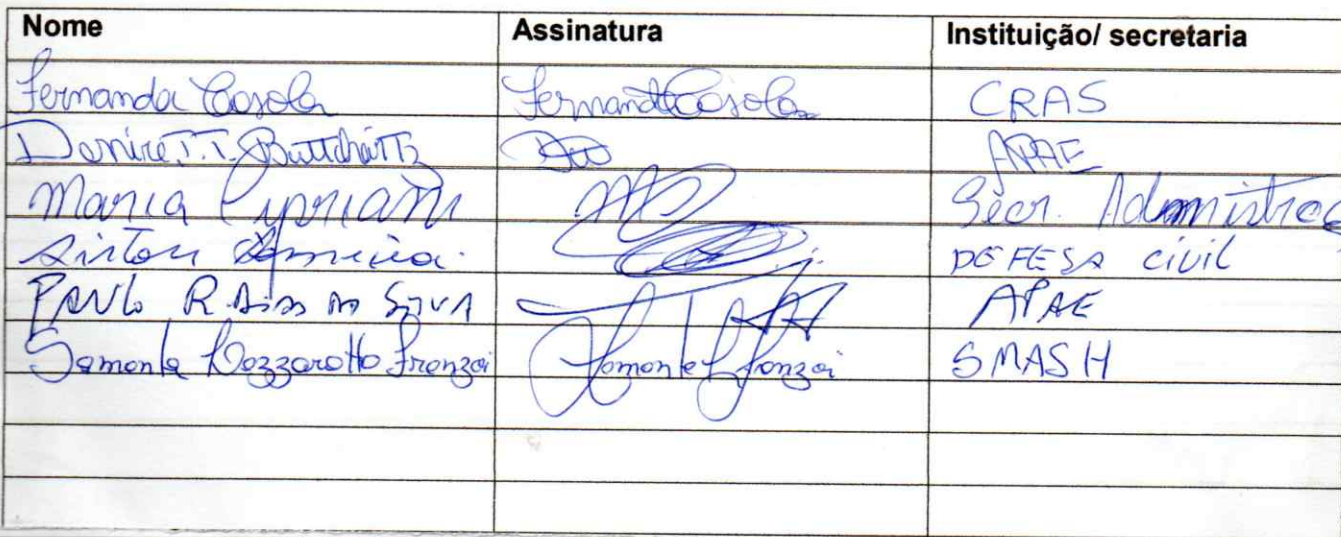 Nome Assinatura Instituição/ secretaria
Fernanda Casola Fernanda Casola CRAS
Denire T.T. APAE
Maria Cypriani Secr. Administraç
DEFESA civil
PAULO R. Dias da SILVA APAE
Samanta Lazzarotto Franzoi Samanta L Franzoi SMASH